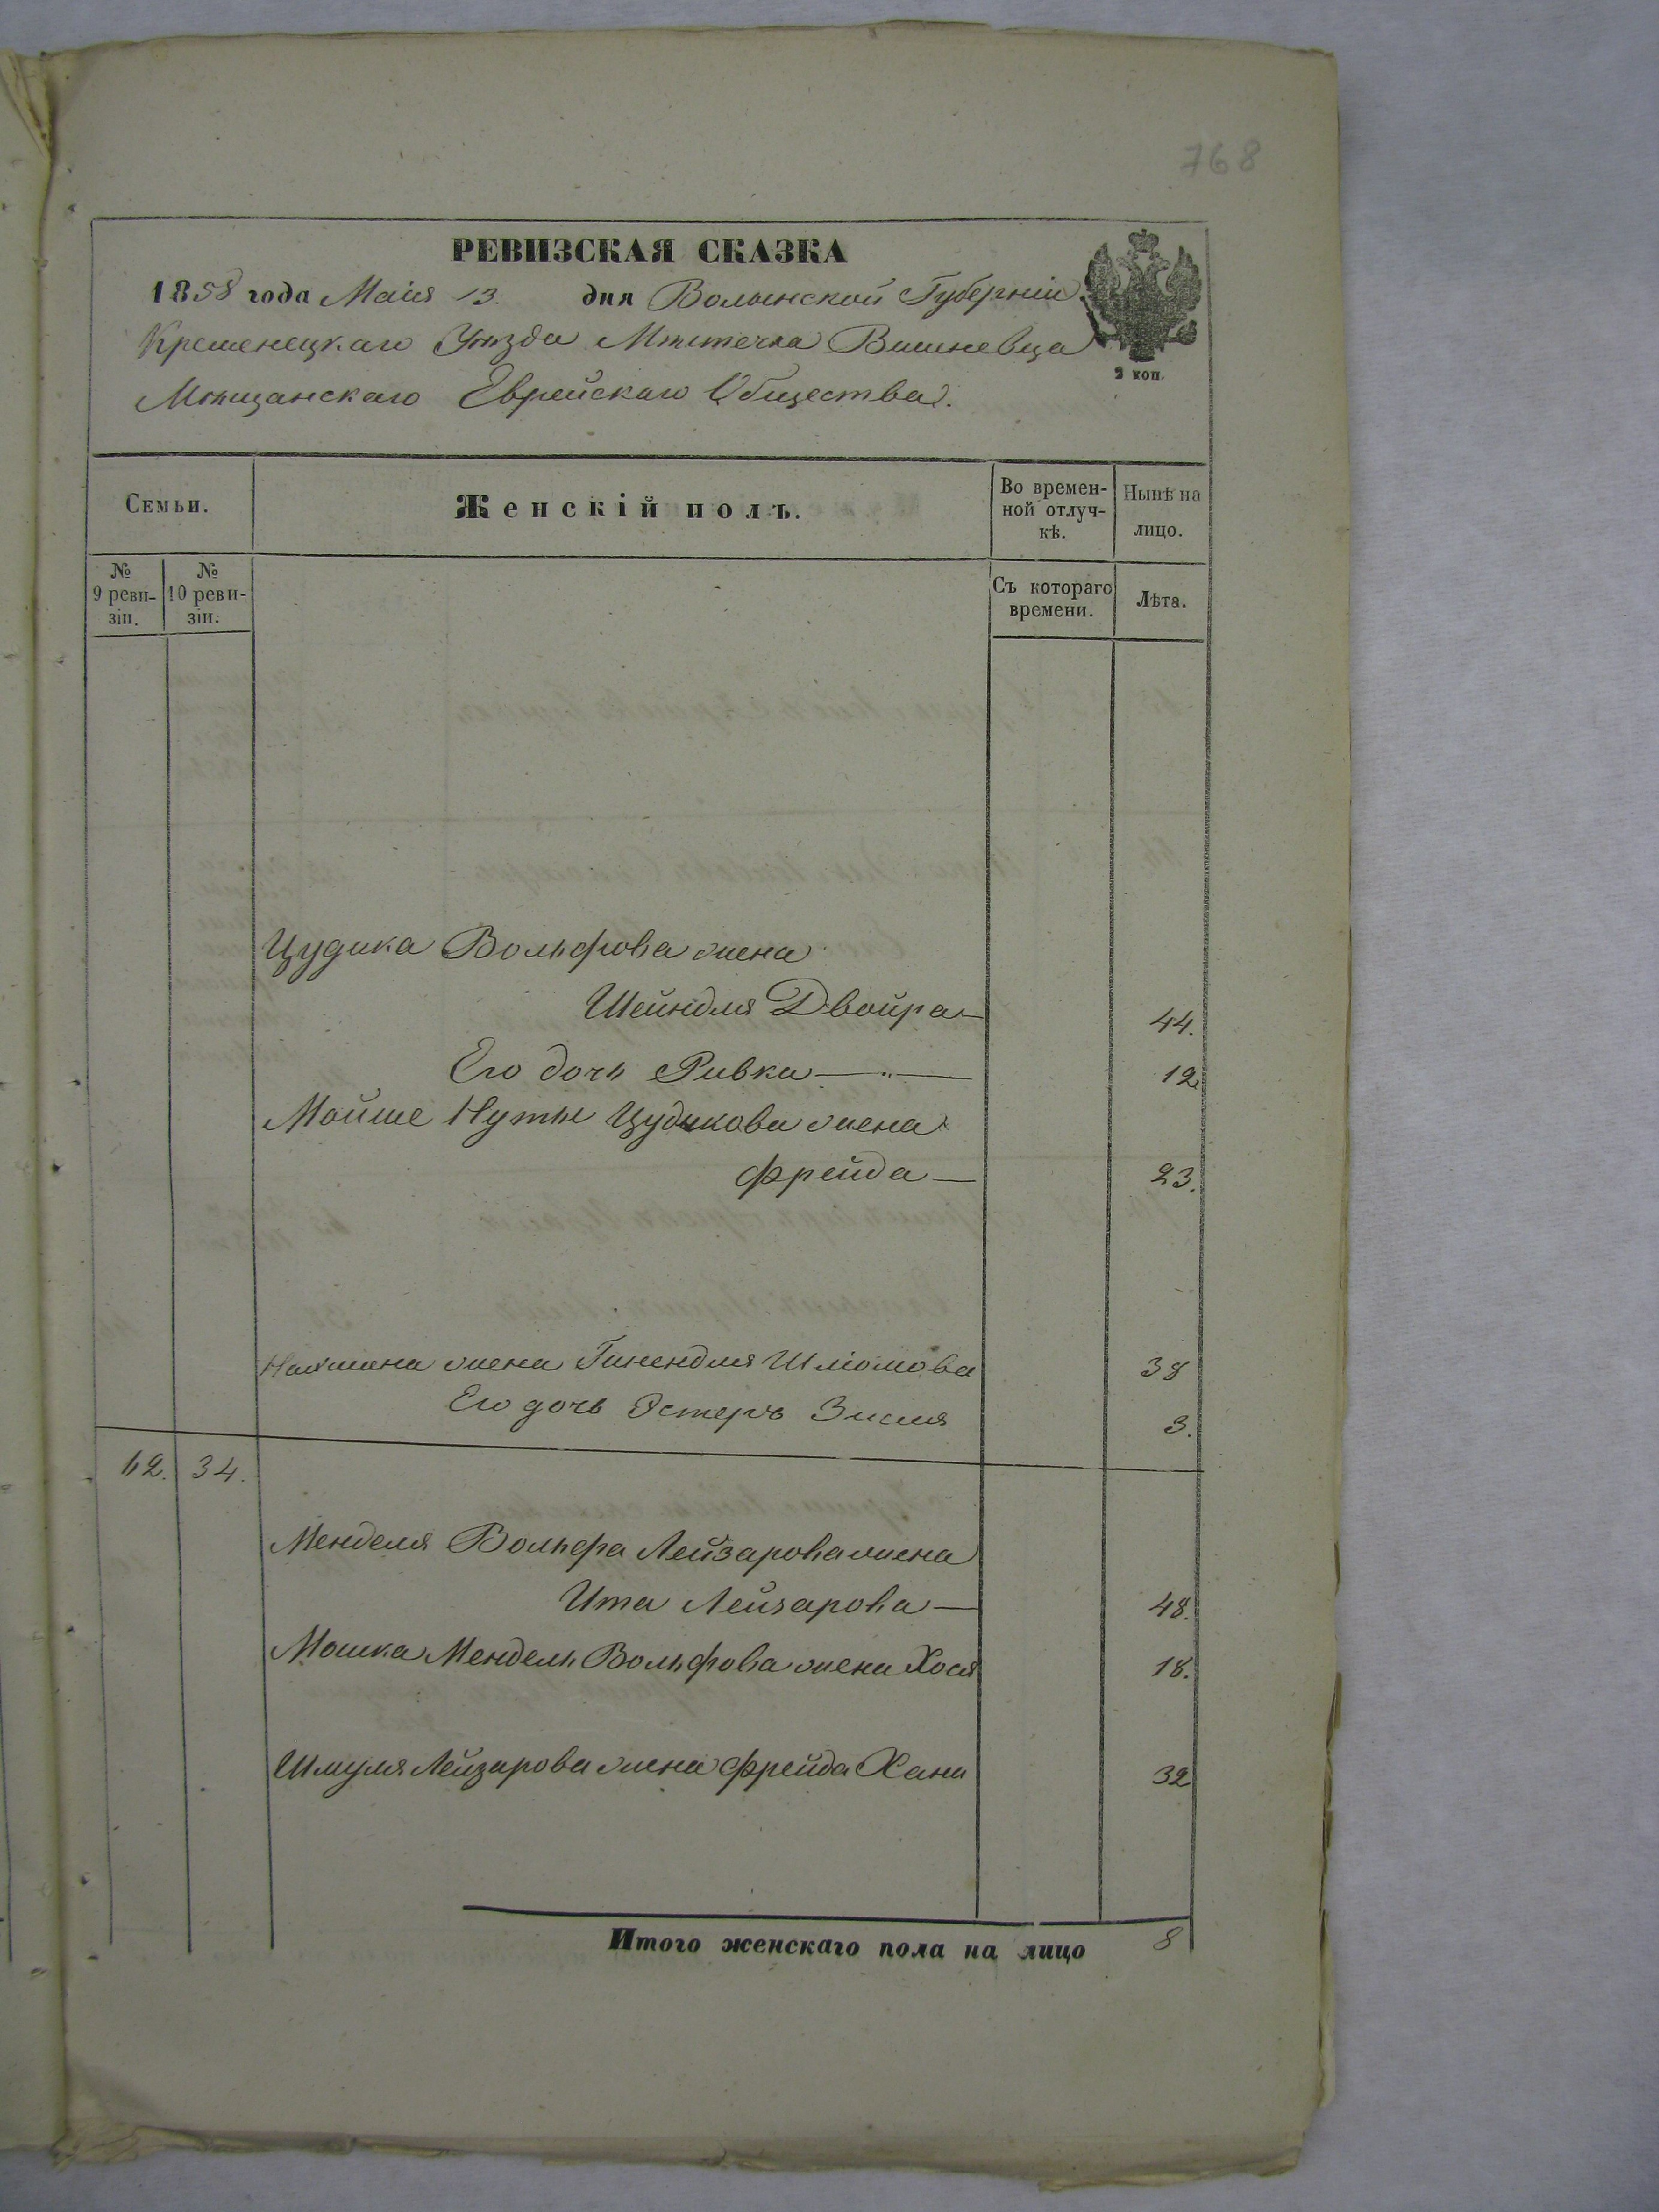 768
РЕВИЗСКАЯ СКАЗКА
1858 года Маія 13. дня Волынской Губерніи
Кременецкаго Уѣзда Мѣстечка Вишневца
2 коп.
Мѣщанскаго Еврейскаго Общества.
Семьи. Женскій полъ. Во времен-ной отлуч-кѣ. Нынѣ на лицо.
№ 9 реви-зіи. № 10 реви-зіи. Съ котораго времени. Лѣта.
Цудика Вольфова жена
Шейндля Двойра — 44.
Его дочь Ривка — 12
Мойше Нуты Цудикова жена
Фрейда — 23.
Нахмана жена Гинендля Шліомова 38
Его дочь Эстеръ Зисля 3.
42. 34.
Менделя Вольфа Лейзарова жена
Ита Лейзарова — 48.
Мошка Мендель Вольфова жена Хося 18.
Шмуля Лейзарова жена Фрейда Хана 32
Итого женскаго пола на лицо 8